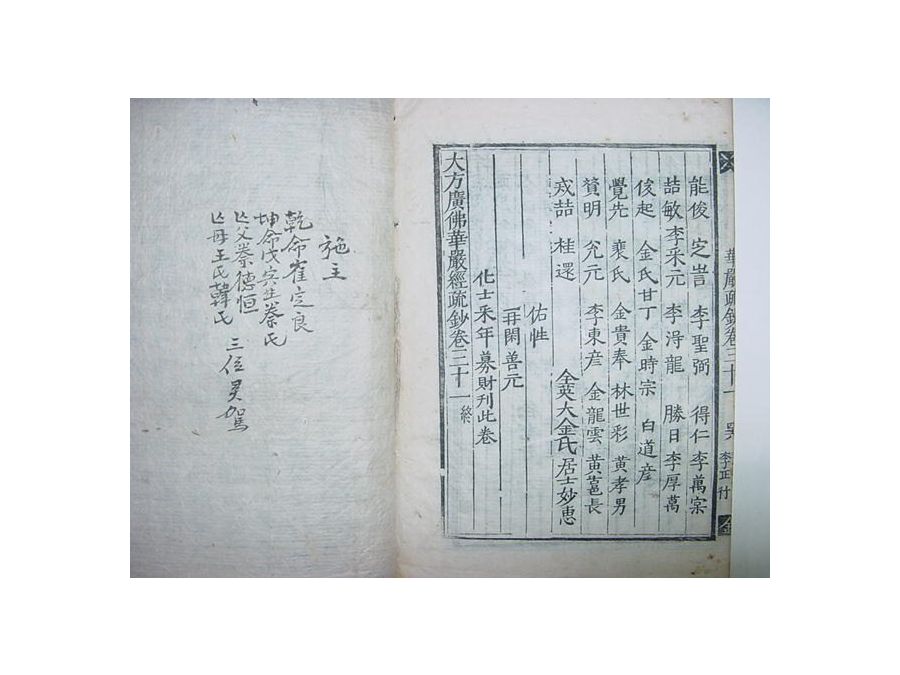 華嚴疏鈔卷三十一
李正行
能俊 定訔 李聖弼 得仁 李萬宗
喆敏 李采元 李淂龍 勝日 李厚萬
俊起 金氏甘丁 金時宗 白道彦
覺先 裵氏 金貴奉 林世彩 黃孝男
賛明 兊元 李東彦 金龍雲 黃邕長
戎喆 桂還 金英大 金氏 居士妙恵
佑性
再閑 善元
化士采年募財刊此卷
大方廣佛華嚴經疏鈔卷三十一 終
施主
乾命崔定良
坤命戊寅生蔡氏
亡父蔡德恒
亡母王氏韓氏
三位灵駕